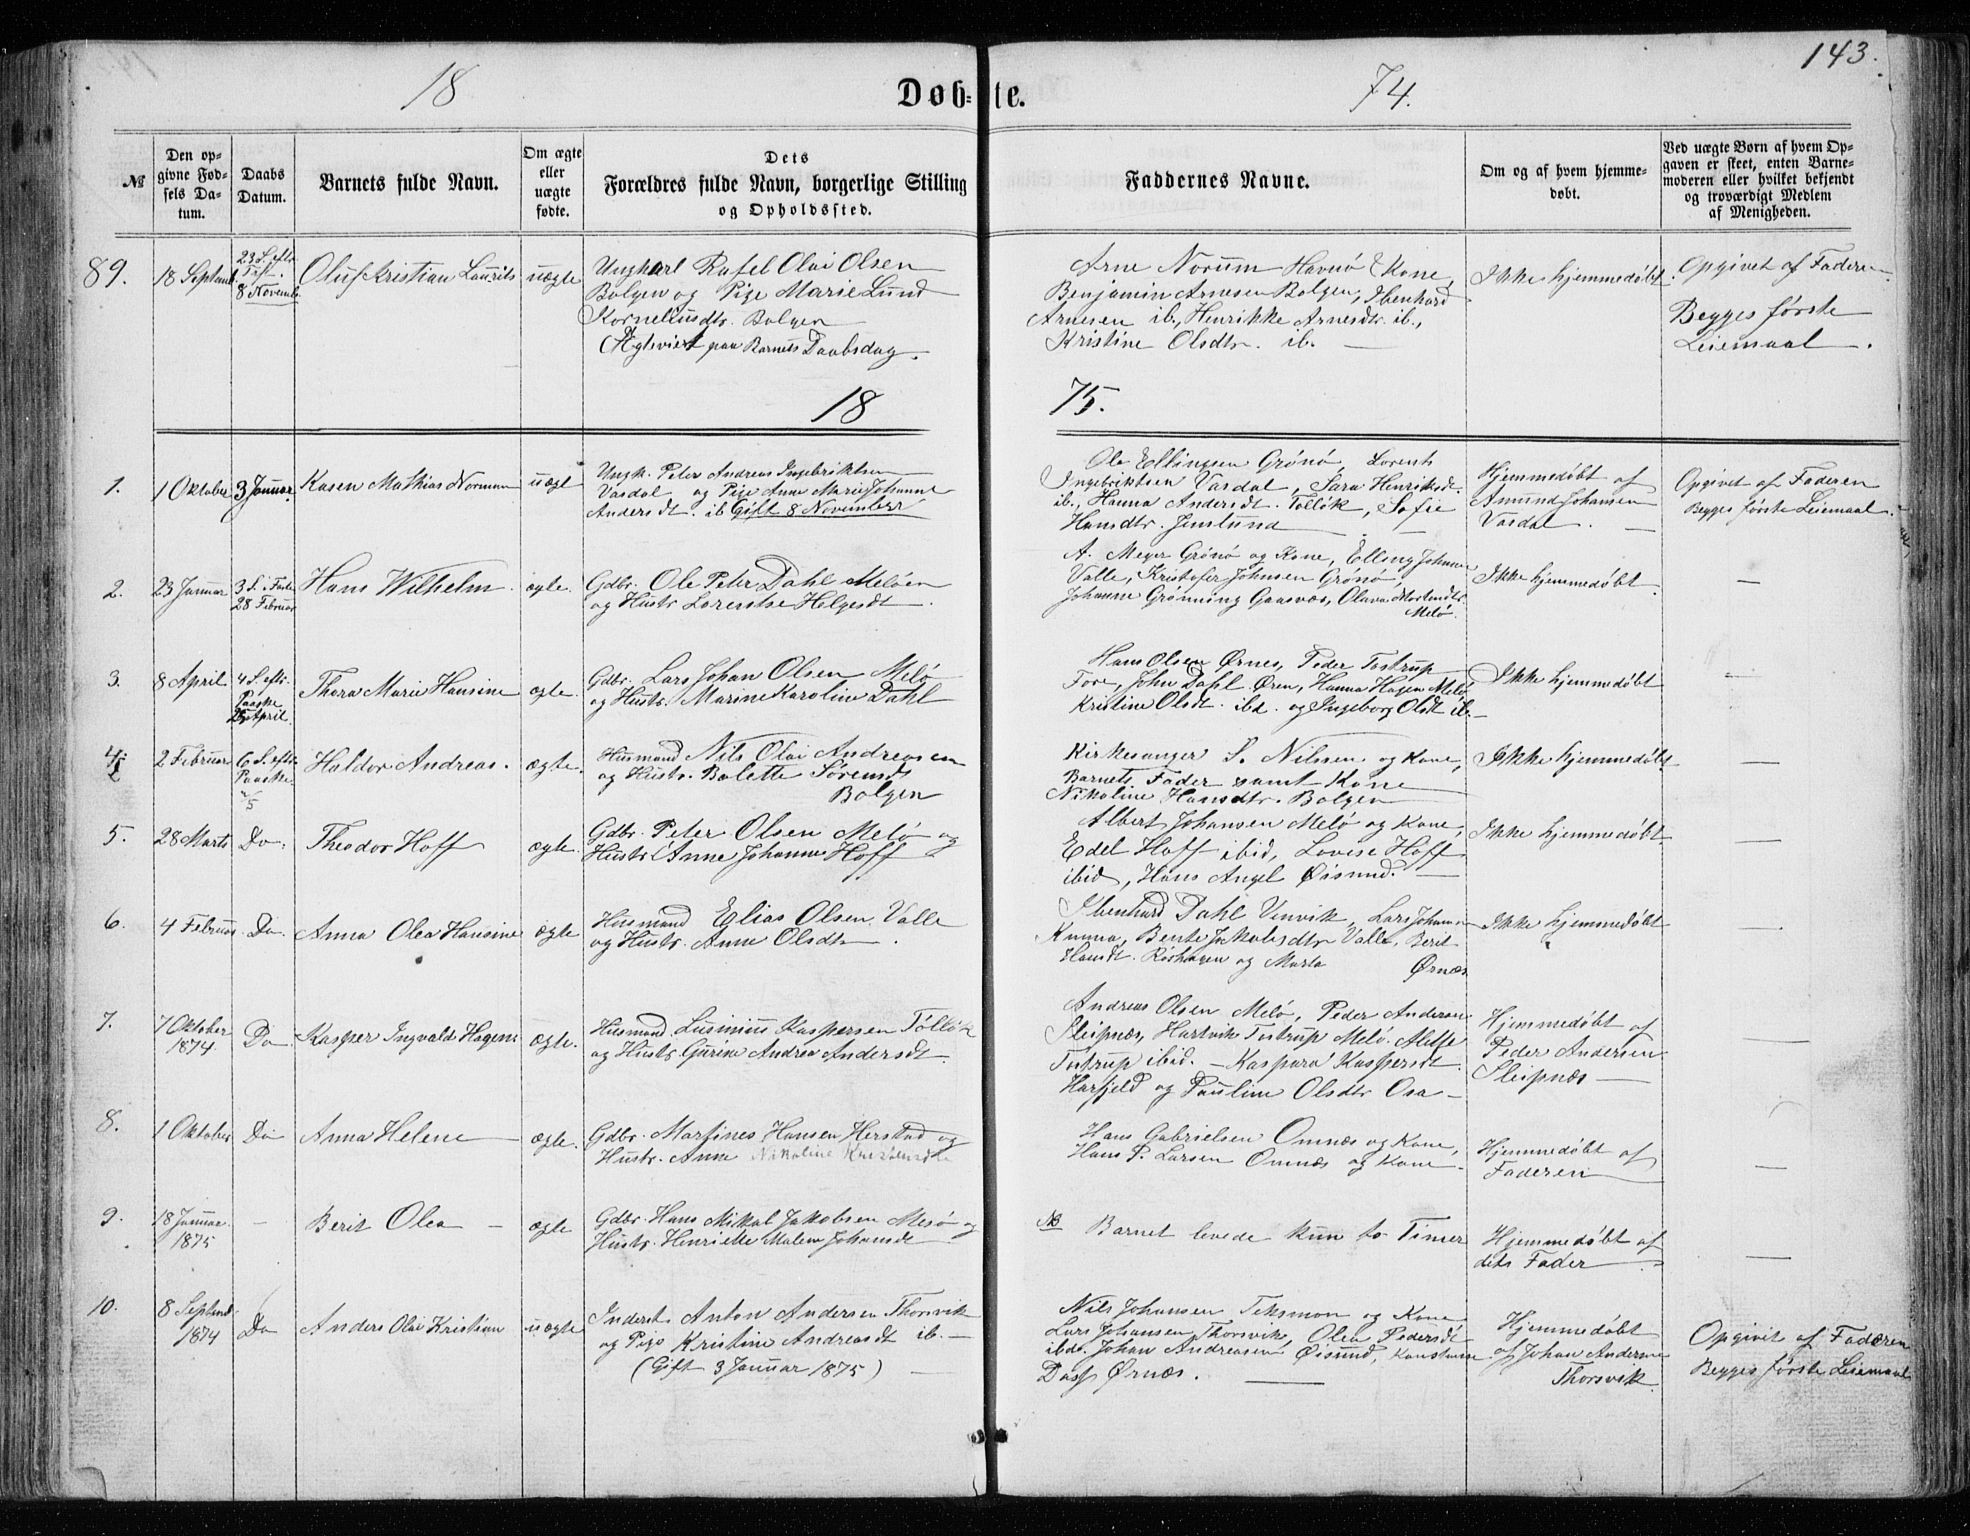 143.
18 74.
Døb-te.
№
Den op-
givne Fød-
sels Da-
tum.
Daabs
Datum.
Barnets fulde Navn.
Om ægte
eller
uægte
fødte.
Dets
Forældres fulde Navn, borgerlige Stilling
og Opholdssted.
Faddernes Navne.
Om og af hvem hjemme-
døbt.
Ved uægte Børn af hvem Op-
gaven er skeet, enten Barne-
moderen eller hvilket bekjendt
og troværdigt Medlem
af Menigheden.
89.
18 Septemb
23 S. eft.
8 Novemb.
Oluf Kristian Laurits
uægte
Ungkarl Rafel Olai Olsen
Bolgen og Pige Marie Lund
Korneliusdtr. Bolgen
(Ægteviet paa Barnets Daabsdag.
Arne Norum Havnø & Kone,
Benjamin Arnesen Bolgen, Ibenhard
Arnesen ib., Henrikke Arnesdtr. ib.,
Kristine Olsdtr. ib. —
Ikke hjemmedøbt
Opgivet af Faderen
Begges første
Leiemaal.
18 75.
1.
1 Oktober
3 Januar
Kasen Mathias Norman
uægte
Ungk. Peter Andreas Ingebriktsen
Vasdal og Pige Anne Marie Johanne
Andersdt. ib Gift 8 November
Ole Ellingsen Grønø, Lorents
Ingebriktsen Vasdal, Sara Henriksdt.
ib., Hanna Andersdt. Tollok, Sofie
Hansdtr. Jenslund —
Hjemmedøbt af
Amund Johansen
Vasdal. —
Opgivet af Faderen
Begges første Leiemaal.
2.
23 Januar
3 S. i Faste
28 Februar
Hans Wilhelm.
ægte.
Gdbr. Ole Peter Dahl Meløen
og Hustr. Lorentse Helgesdt.
A. Meyer Grønø og Kone, Elling Johnsen
Valle, Kristofer Johnsen Grønø,
Johanne Grønning Gaasvær, Olava Mortendtr.
Melø.
Ikke hjemmedøbt.
—
3.
8 April
4 S. eftr.
Paaske
25 April.
Thora Marie Hansine
ægte.
Gdbr. Lars Johan Olsen Melø
og Hustr. Marine Karoline Dahl
Hans Olsen Ørnes, Peder Tostrup
Fore, John Dahl Øren, Hanna Hagen Melø
Kristine Olsdt. ibd. og Ingeborg Olsdt ib.—
Ikke hjemmedøbt
—
4.
2 Februar
6 S. eftr.
Paaske
2/5
Haldor Andreas.
ægte.
Husmand Nils Olai Andreasen
og Hustr. Bolette Sørensdt
Bolgen
Kirkesanger S. Nilssen og Kone,
Barnets Fader samt Kone
Nikoline Hansdtr. Bolgen
Ikke hjemmedøbt.
—
5.
28 Marts
Do.
Theodor Hoff
ægte.
Gdbr. Peter Olsen Melø og
Hustr. Anne Johanna Hoff
Albert Johansen Melø og Kone,
Edel Hoff ibid, Lovise Hoff
ibid, Hans Angel Øisund. —
Ikke hjemmedøbt.
—
6.
4 Februar
Do.
Anna Olea Hansine
ægte
Husmand Elias Olsen Valle
og Hustr. Anne Olsdtr.
Ibenhard Dahl Vinvik, Lars Johansen
Kunna, Bente Jakobsdtr Valle, Berit
Hansdt. Røshagen og Marta Ørnæs
Ikke hjemmedøbt
—
7.
7 Oktober
1874.
Do
Kasper Ingvald Hagen
ægte.
Husmand Lusinius Kaspersen Tollok
og Hustr. Gurine Andrea Andersdt.
Andreas Olsen Melø, Peder Andersen
Sleipnæs, Hartvik Tostrup Melø. Aletse
Tostrup ibid. — Kaspara Kaspersdt.
Harfjeld og Pauline Olsdtr Osa —
Hjemmedøbt af
Peder Andersen
Sleipnæs —
—
8.
1 Oktober
Do
Anna Helene —
ægte.
Gdbr. Martines Hansen Herstad og
Hustr. Anne Nikoline Kristensdtr
Hans Gabrielsen Omnæs og Kone,
Hans P. Larsen Omnæs og Kone —
Hjemmedøbt af
Faderen
—
9.
18 Januar.
1875
—
Berit Olea —
ægte
Gdbr. Hans Mikal Jakobsen Mesø og
Hustr. Henriette Malene Johansdt
NB Barnet levede kun to Timer
Hjemmedøbt af
dets Fader —
—
10.
8 Septemb.
1874
Do
Anders Olai Kristian
uægte
Inderst Anton Andersen Thorsvik
og Pige Kristine Andreasdt ib. —
(Gift 3 Januar 1875) —
Nils Johansen Teksmon og Kone
Lars Johansen Thorsvik, Olea Pedersdt
ibd. Johan Andreasen Øisund, Konstanse
Dass Ørnæs. —
Hjemmedøbt
af Johan Andersen
Thorsvik.
Opgivet af Faderen
Begges første Leiemaal